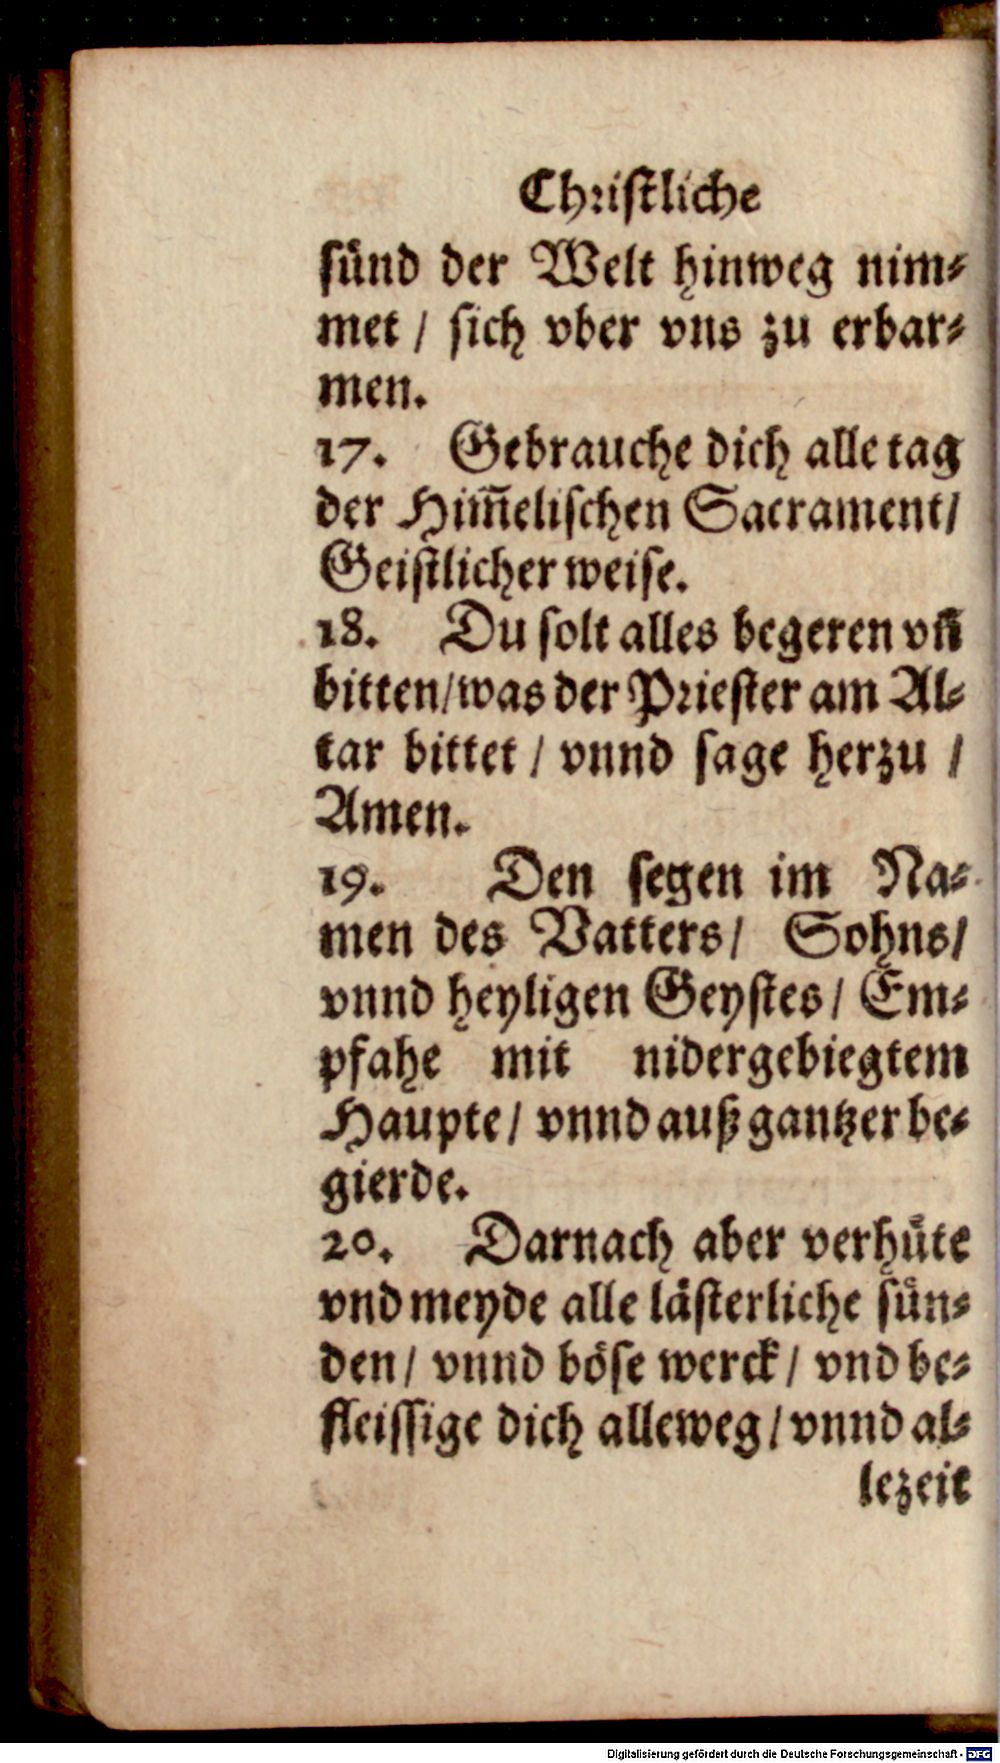 Christliche
sünd der Welt hinweg nim-
met / sich vber vns zu erbar-
men.
17. Gebrauche dich alle tag
der Him̅elischen Sacrament/
Geistlicher weise.
18. Du solt alles begeren vn̅
bitten/was der Priester am Al-
tar bittet / vnnd sage herzu /
Amen.
19. Den segen im Na-
men des Vatters/ Sohns/
vnnd heyligen Geystes/ Em-
pfahe mit nidergebiegtem
Haupte/ vnnd auß gantzer be-
gierde.
20. Darnach aber verhüte
vnd meyde alle lästerliche sün-
den/ vnnd böse werck/ vnd be-
fleissige dich alleweg/vnnd al-
lezeit
Digitalisierung gefördert durch die Deutsche Forschungsgemeinschaft - DFG